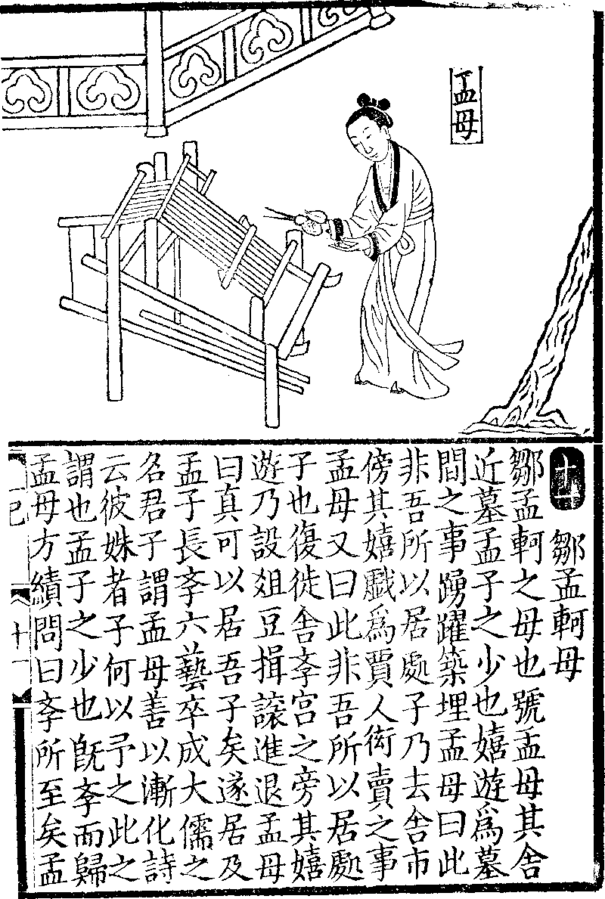 孟母
十一 鄒孟軻母
鄒孟軻之母也號孟母其舍
近墓孟子之少也嬉遊爲墓
間之事踴躍築埋孟母曰此
非吾所以居處子乃去舍市
傍其嬉戲爲賈人衒賣之事
孟母又曰此非吾所以居處
子也復徙舍斈宮之旁其嬉
遊乃設俎豆揖讓進退孟母
曰真可以居吾子矣遂居及
孟子長斈六藝卒成大儒之
名君子謂孟母善以漸化詩
云彼姝者子何以予之此之
謂也孟子之少也旣斈而歸
孟母方績問曰斈所至矣孟
十一